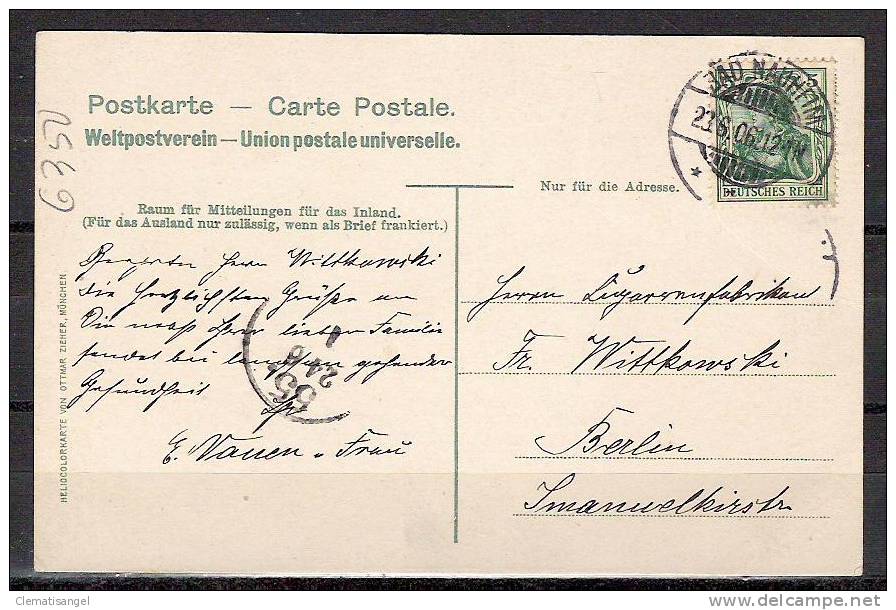 Postkarte — Carte Postale.
Weltpostverein — Union postale universelle.
6350
Raum für Mitteilungen für das Inland.
(Für das Ausland nur zulässig, wenn als Brief frankiert.)
Nur für die Adresse.
BAD NAUHEIM
23.6.06. 12-1N
DEUTSCHES REICH
Herrn Wittkowski
die herzlichsten Grüße an
Sie nebst Ihrer lieben Familie
sendet bei
Gesundheit
Ihr
E. Vanen u Frau
55
24 6
Herrn Zigarrenfabrikant
Fr. Wittkowski
Berlin
Immanuelkirstr.
HELIOCOLORKARTE VON OTTMAR ZIEHER, MÜNCHEN
Clematisangel
delcampe.net